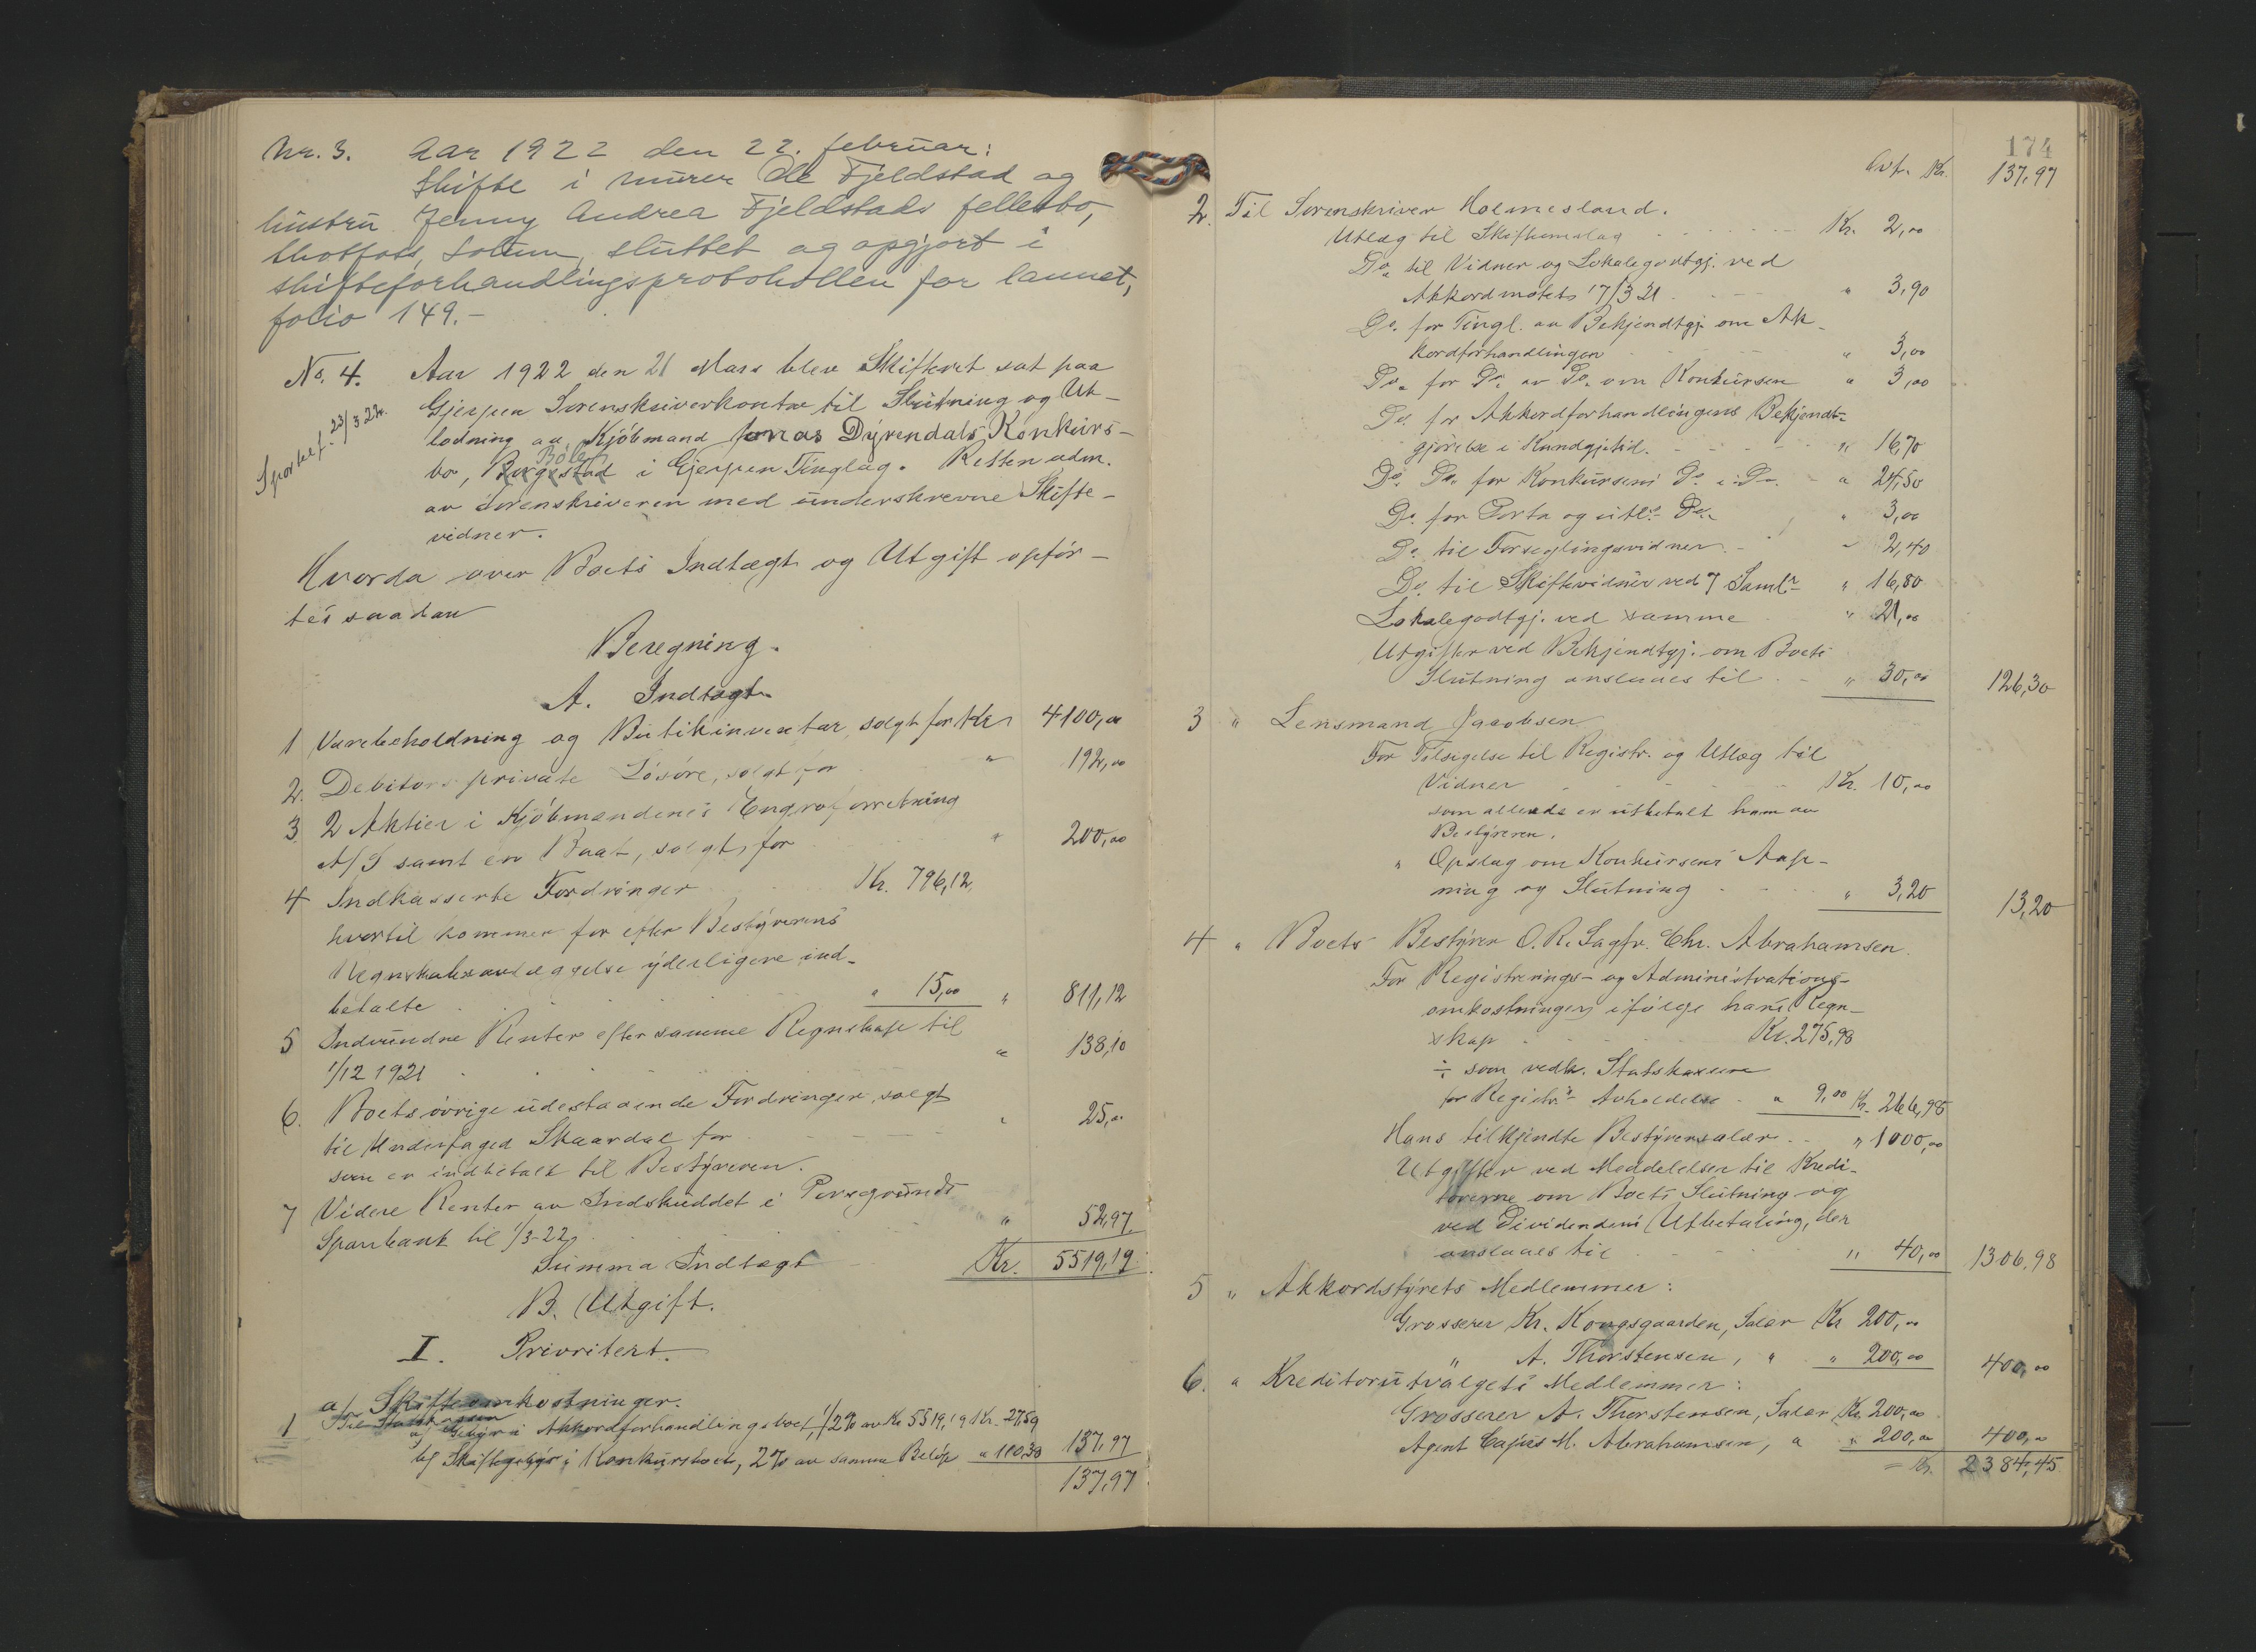 Nr. 3. Aar 1922 den 22. februar:
skifte i murer Ole Fjeldstad og
hustru Jenny Andrea Fjeldstads fellesbo,
Skotfoss, Solum, sluttet og opgjort i
skifteforhandlingsprotokollen for lannet,
folio 149.-
No. 4. Aar 1922 den 21 Mars blev Skifteret sat paa
Sportelf. 23/3 22.
Gjerpen Sorenskriverkontor til Slutning og Ut-
lodning av Kjöbmand Jonas Dÿrendals Konkurs-
Böle
bo, Borgestad i Gjerpen Tinglag. Retten adm.
av Sorenskriveren med underskrevne Skifte-
vidner.
Hvorda over Boets Indtægt og Utgift opför-
tes saadan
Beregning.
A. Indtægt
1 Varebeholdning og Butikinventar, solgt for Kr. 4100,00
2. Debitors private Lösöre, solgt for " 192,00
3. 2 Aktier i Kjöbmændenes Engrosforretning
A/S samt en Baat, solgt for " 200,00
4 Indkasserte Fordringer Kr. 796,12
hvortil kommer for efter Bestÿrerens
Regnskabsavlæggelse ÿderligere ind-
betalte " 15,00 " 811,12
5 Indvundne Renter efter samme Regnskap til
1/12 1921 " 138,10
6. Boets övrige udestaaende Fordringer, solgt
til Skaardal for " 25,00
som er indbetalt til Bestÿreren.
7 Videre Renter av Indskuddet i Porsgrunds
Sparebank til 1/3-22 " 52,97
Summa Indtægt Kr. 5519,19
B. Utgift.
I. Prioritert.
a/ Skifteomkostninger.
1 Til Statskassen
a) Gebÿr i Akkordforhandlingsboet, 1/2% av Kr 5519,19 Kr. 27,59
b) Skiftegebÿr i Konkursboet, 2% av samme Belöp " 110,38 137,97
137,97
174
Ovf. Kr. 137,97
2. Til Sorenskriver Holmesland.
Utlæg til Kr. 2,00
Do. til Vidner og Lokalegodtgj. ved
Akkordmötets 17/3 21 " 3,90
Do. for Tingl. av Bekjendtgj. om Ak-
kordforhandlingen " 3,00
Do. for Do. av Do. om Konkursen " 3,00
Do. for Akkordforhandlingens Bekjendt-
gjörelse i Kundgjtid. " 16,70
Do. Do. for Konkursens Do. i Do. " 24,50
Do. for Porto og Do. " 3,00
Do. til Forseglingsvidner " 2,40
Do. til Skiftevidner ved 7 Saml. " 16,80
Lokalegodtgj. ved samme " 21,00
Utgifter ved Bekjendtgj. om Boets
Slutning anslaaes til " 30,00 126,30
3 " Lensmand Jacobsen
For Tilsigelse til Registr. og Utlæg til
Vidner Kr. 10,00
som allerede er utbetalt ham av
Bestÿreren.
" Opslag om Konkursens Aap-
ning og Slutning " 3,20 13,20
4 " Boets Bestÿrer O. R. Sagfr. Chr. Abrahamsen.
For Registrerings- og Administrations-
omkostninger ifölge hans Regn-
skap Kr. 275,98
÷ som vedk. Statskassen
for Registr. Avholdelse " 9,00 Kr. 266,98
Hans tilkjendte Bestÿrersalær " 1000,00
Utgifter ved Meddelelsen til Kredi-
torerne om Boets Slutning og
ved Dividendens Utbetaling, der
anslaaes til " 40,00 1306,98
5 " Akkordstÿrets Medlemmer:
Grosserer Kr. Kongsgaarden, Salær Kr 200,00
" A. Thorstensen, " " 200,00 400,00
6. " Kreditorutvalgets Medlemmer:
Grosserer A. Thorstensen, Salær Kr. 200,00
Agent Cajus M. Abrahamsen, " " 200,00 400,00
Kr. 2384,45